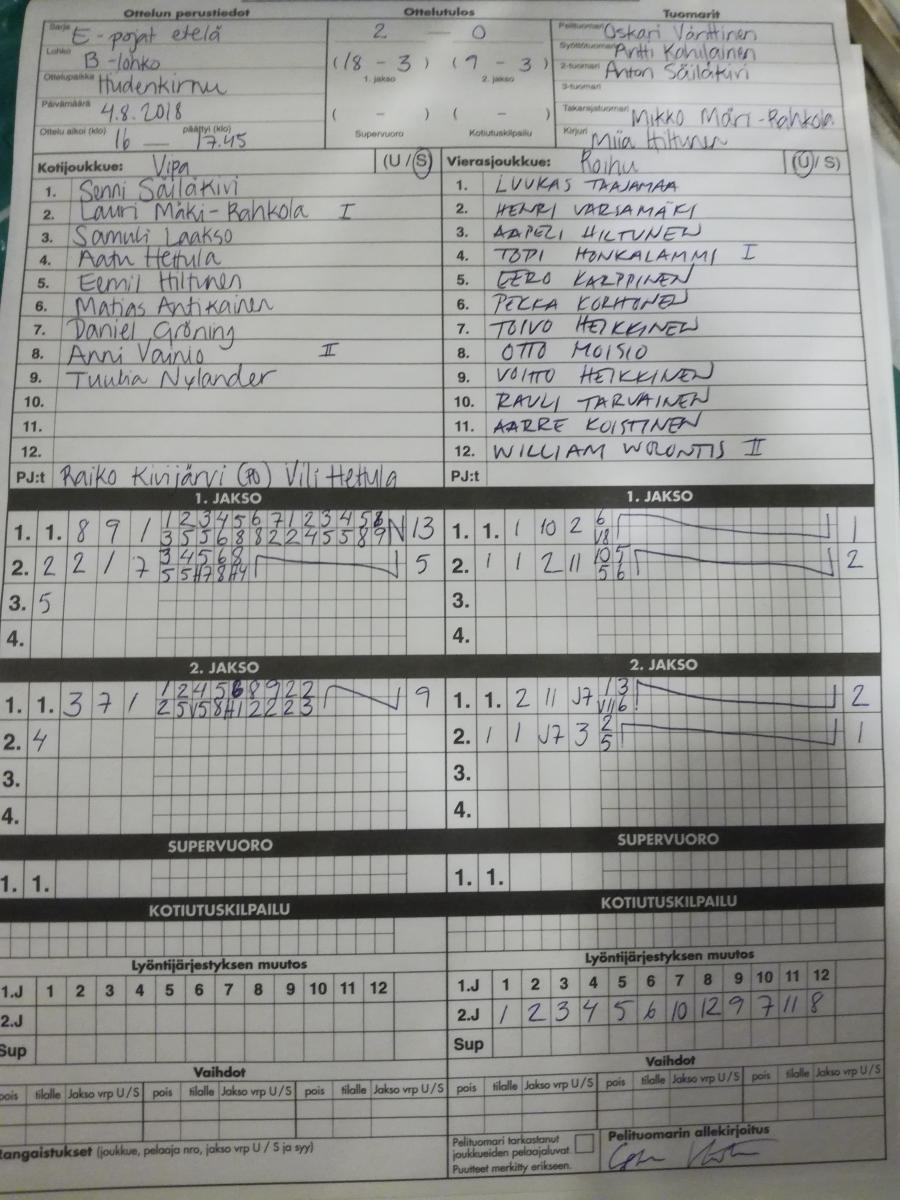 Ottelun perustiedot Ottelutulos Tuomarit
Sarja E-pojat etelä
Lohko B-lohko
Ottelupaikka Hiidenkirnu
Päivämäärä 4.8.2018
Ottelu alkoi (klo) 16 — päättyi (klo) 17.45
2 — 0
(18 - 3) (9 - 3)
1. jakso 2. jakso
( - ) ( - )
Supervuoro Kotiutuskilpailu
Pelituomari Oskari Värttinen
Syöttötuomari Antti Kohilainen
2-tuomari Anton Säiläkivi
3-tuomari
Takarajatuomari Mikko Märi-Rahkola
Kirjuri Miia Hiltunen
Kotijoukkue: Vipa (U / S)
1. Senni Säiläkivi
2. Lauri Mäki-Rahkola I
3. Samuli Laakso
4. Aatu Hettula
5. Eemil Hiltunen
6. Matias Antikainen
7. Daniel Gröning
8. Anni Vainio II
9. Tuulia Nylander
10.
11.
12.
PJ:t Raiko Kivijärvi (PO) Vili Hettula
Vierasjoukkue: Roihu (U / S)
1. LUUKAS TAAJAMAA
2. HENRI VARSAMÄKI
3. AAPELI HILTUNEN
4. TOPI HONKALAMMI I
5. EERO KARPPINEN
6. PEKKA KORHONEN
7. TOIVO HEIKKINEN
8. OTTO MOISIO
9. VOITTO HEIKKINEN
10. RAULI TARVAINEN
11. AARRE KOISTINEN
12. WILLIAM WORONTIS II
PJ:t
1. JAKSO
1. 1. 8 9 1 13
2. 2 2 1 7 5
3. 5
4.
1. JAKSO
1. 1. 1 10 2 1
2. 1 1 2 11 2
3.
4.
2. JAKSO
1. 1. 3 7 1 9
2. 4
3.
4.
2. JAKSO
1. 1. 2 11 2
2. 1 1 3 1
3.
4.
SUPERVUORO
1. 1.
SUPERVUORO
1. 1.
KOTIUTUSKILPAILU
KOTIUTUSKILPAILU
Lyöntijärjestyksen muutos
1.J 1 2 3 4 5 6 7 8 9 10 11 12
2.J
Sup
Lyöntijärjestyksen muutos
1.J 1 2 3 4 5 6 7 8 9 10 11 12
2.J 1 2 3 4 5 6 10 12 9 7 11 8
Sup
Vaihdot
pois tilalle Jakso vrp U / S pois tilalle Jakso vrp U / S pois tilalle Jakso vrp U / S
Vaihdot
pois tilalle Jakso vrp U / S pois tilalle Jakso vrp U / S pois tilalle Jakso vrp U / S
Rangaistukset (joukkue, pelaaja nro, jakso vrp U / S ja syy)
Pelituomari tarkastanut
joukkueiden pelaajaluvat.
Puutteet merkitty erikseen.
Pelituomarin allekirjoitus